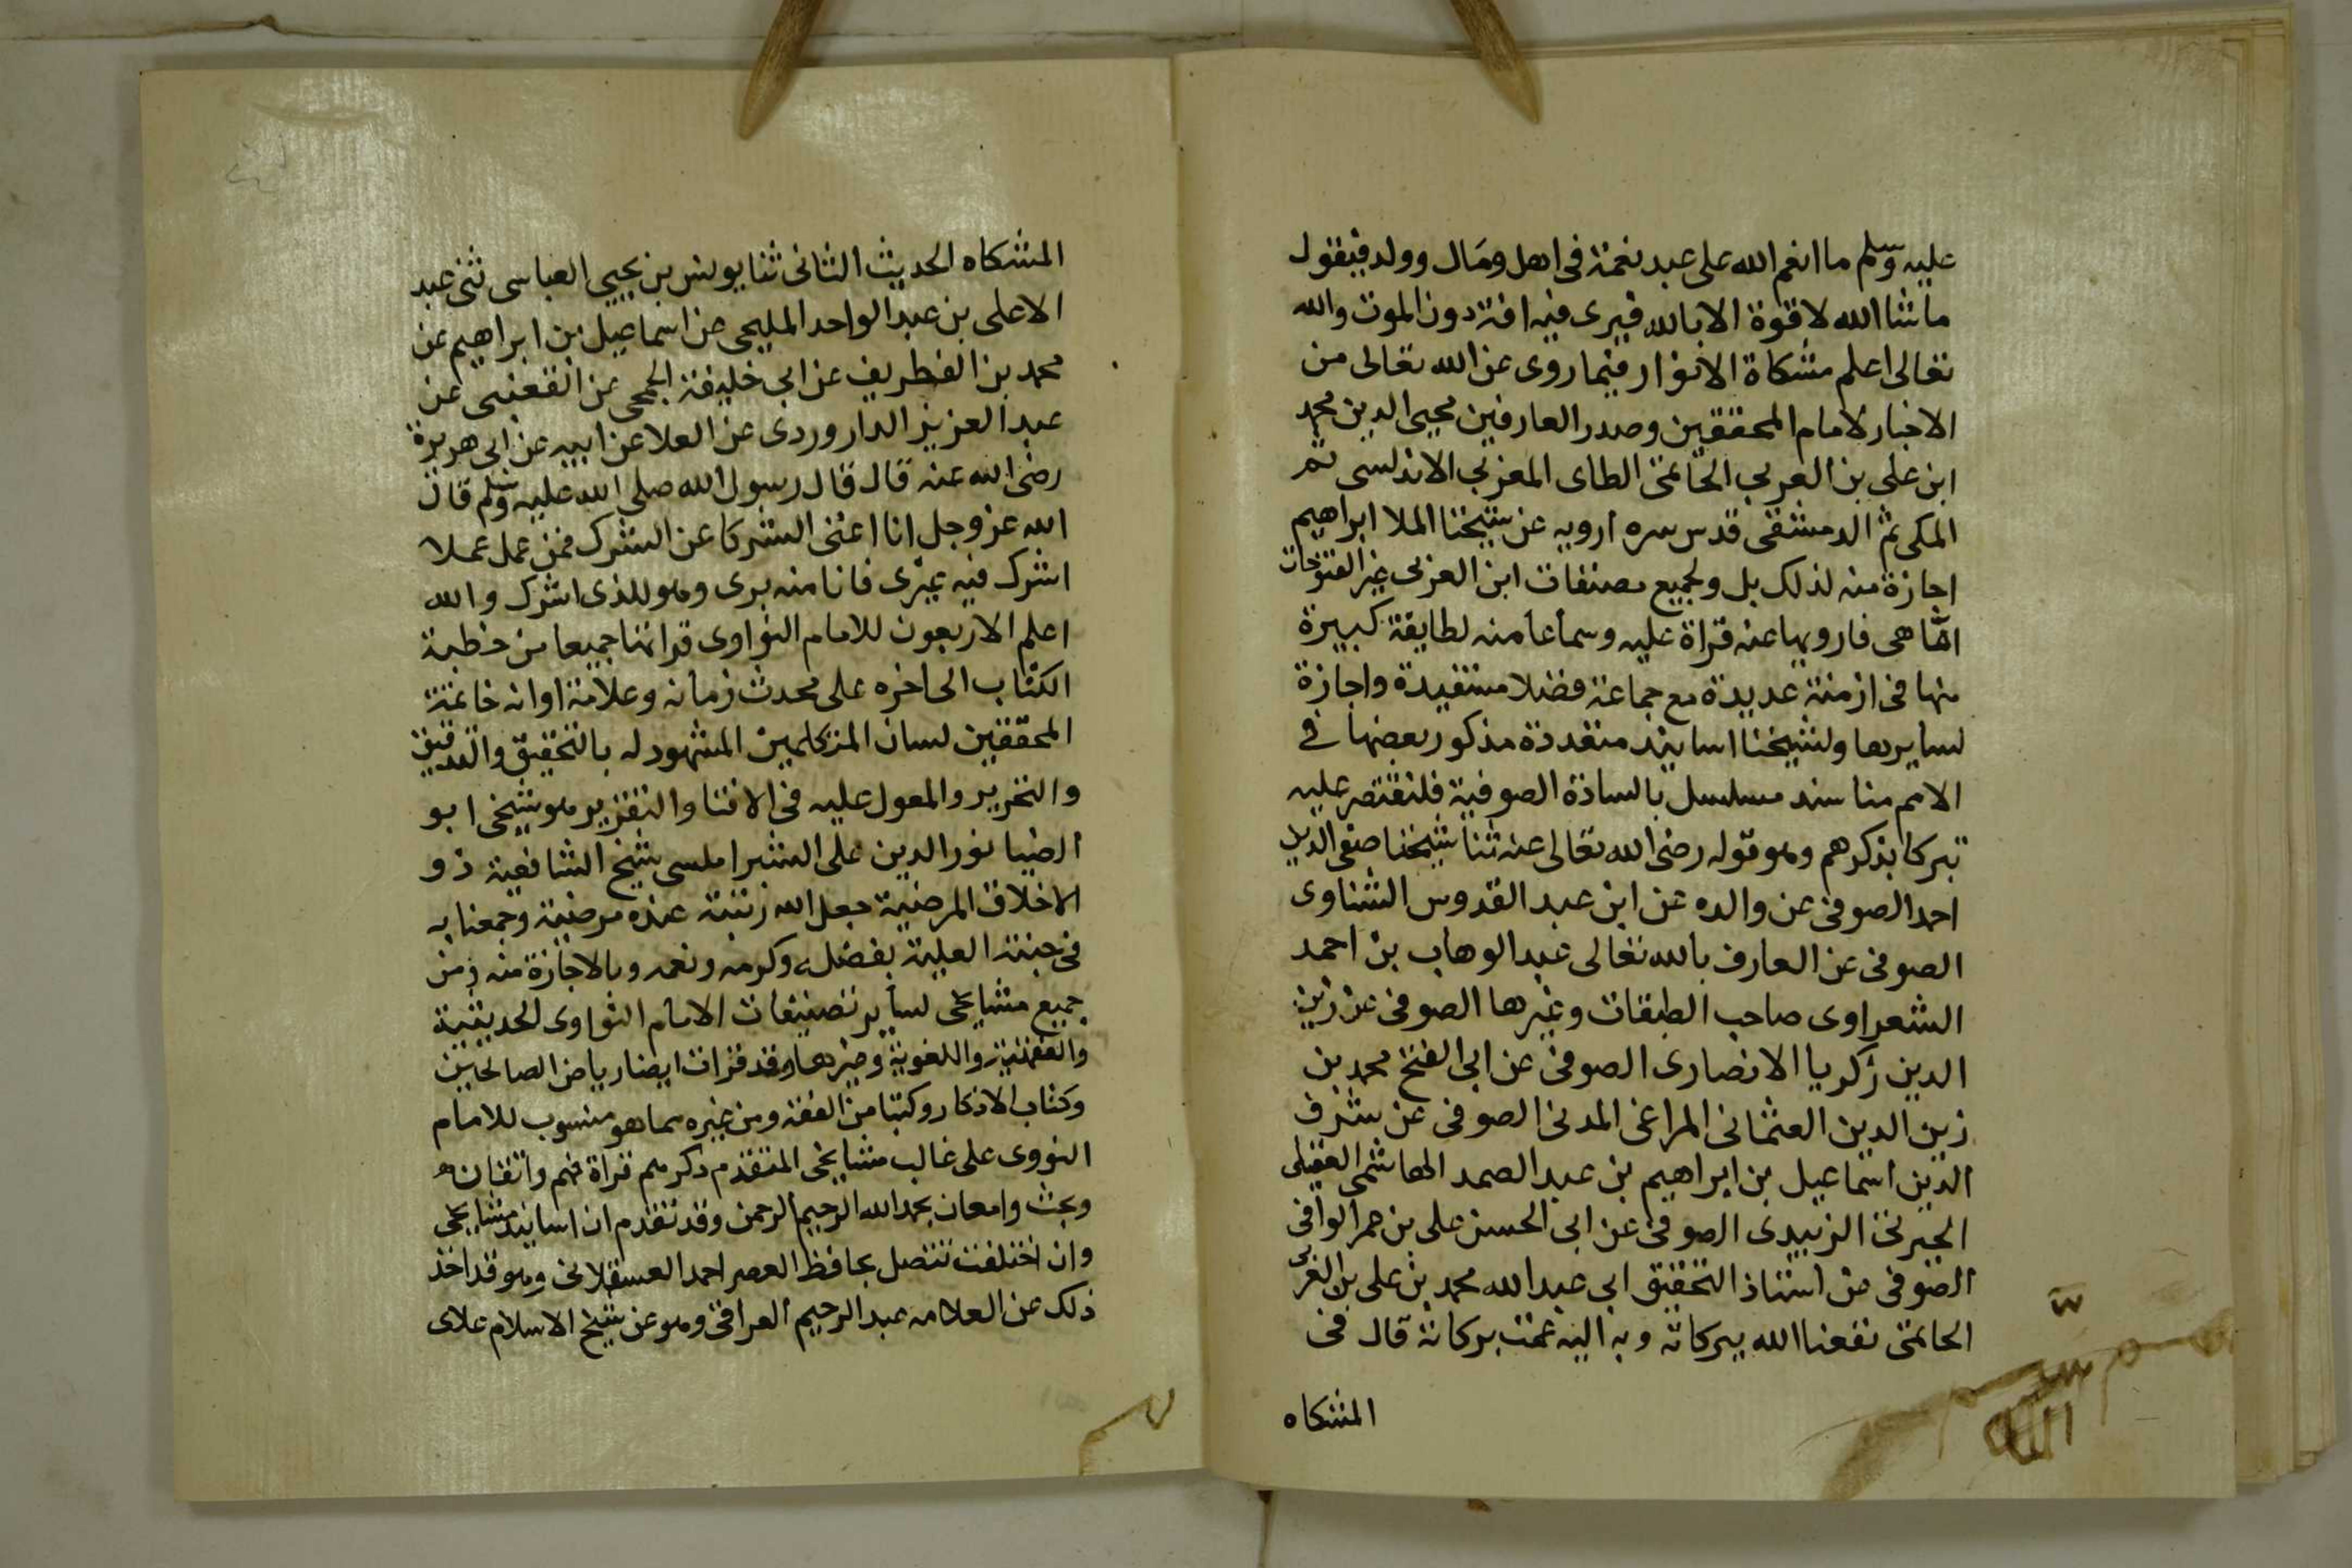 عليه وسلم ما انعم الله على عبد نعمة فى اهل ومال وولد فيقول
ما شا الله لا قوة الا بالله فيرى فيه افة دون الموت والله
تعالى اعلم مشكاة الانوار فيما روى عن الله تعالى من
الاخبار لامام المحققين وصدر العارفين محيى الدين محمد
ابن على بن العربي الحاتمى الطاى المغربي الاندلسى ثم
المكى ثم الدمشقى قدس سره ارويه عن شيخنا الملا ابراهيم
اجازة منه لذلك بل ولجميع مصنفات ابن العربى غير الفتوحات
اما هى فارويها عنه قراة عليه وسماعا منه لطايفة كبيرة
منها فى ازمنة عديدة مع جماعة فضلا مستفيدة واجازة
لسايرها ولشيخنا اسانيد متعددة مذكور بعضها فى
الامم منا سند مسلسل بالسادة الصوفية فلنقتصر عليه
تبركا بذكرهم وهو قوله رضى الله تعالى عنه ثنا شيخنا صفى الدين
احمد الصوفى عن والده عن ابن عبد القدوس الشناوى
الصوفى عن العارف بالله تعالى عبد الوهاب بن احمد
الشعراوى صاحب الطبقات وغيرها الصوفى عن زين
الدين زكريا الانصارى الصوفى عن ابى الفتح محمد بن
زين الدين العثمانى المراغى المدنى الصوفى عن شرف
الدين اسماعيل بن ابراهيم بن عبد الصمد الهاشمى العقيلى
الجبرتى الزبيدى الصوفى عن ابى الحسن على بن عمر الوافى
الصوفى عن استاذ التحقيق ابى عبد الله محمد بن على بن العربى
الحاتمى نفعنا الله ببركاته وبه اليه عمت بركاته قال فى
المشكاه
المشكاه الحديث الثانى ثنا يونس بن يحيى العباسى ثنى عبد
الاعلى بن عبد الواحد المليحى عن اسماعيل بن ابراهيم عن
محمد بن الغطريف عن ابى خليفة الجمحى عن القعنبى عن
عبد العزيز الداروردى عن العلا عن ابيه عن ابى هريرة
رضى الله عنه قال قال رسول الله صلى الله عليه وسلم قال
الله عز وجل انا اغنى الشركا عن الشرك فمن عمل عملا
اشرك فيه غيرى فانا منه برى وهو للذى اشرك والله
اعلم الاربعون للامام النواوى قراتها جميعا من خطبة
الكتاب الى اخره على محدث زمانه وعلامة اوانه خاتمة
المحققين لسان المتكلمين المشهود له بالتحقيق والتدقيق
والتحرير والمعول عليه فى الافتا والتقرير هو شيخى ابو
الضيا نور الدين على الشبراملسى شيخ الشافعية ذو
الاخلاق المرضية جعل الله رتبته عنده مرضية وجمعنا به
فى جنته العلية بفضله وكرمه ونعمه وبالاجازة منه ومن
جميع مشايخى لساير تصنيفات الامام النواوى الحديثية
والفقهية واللغوية وغيرها وقد قرات ايضا رياض الصالحين
وكتاب الاذكار وكتبا من الفقه ومن غيره مما هو منسوب للامام
النووى على غالب مشايخى المتقدم ذكرهم قراة فهم واتقان
وبحث وامعان بحمد الله الرحيم الرحمن وقد تقدم ان اسانيد مشايخى
وان اختلفت تتصل بحافظ العصر احمد العسقلانى وهو قد اخذ
ذلك عن العلامه عبد الرحيم العراقى وهو عن شيخ الاسلام علاى